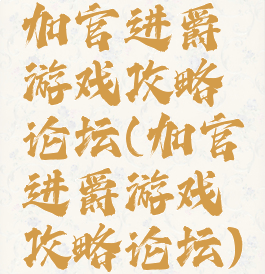 加官进爵
游戏攻略
论坛(加官
进爵游戏
攻略论坛)